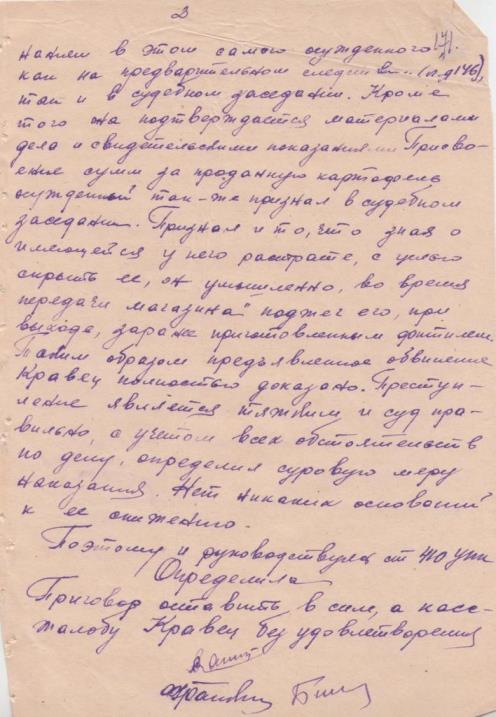 2
171.
нанием в этом самого осужденного
как на предварительном следств... (л.д 146),
так и в судебном заседании. Кроме
того на подтверждается материалами
дела и свидетельскими показаниями Присво-
ение сумм за проданную картофель
осужденный так-же признал в судебном
заседании. Признал и то, что зная о
имеющейся у него растрате, с целью
скрыть ее, он умышленно, во время
передачи магазина поджег его, при
выходе, заране приготовленным фитилем.
Таким образом предъявленное обвинение
Кравец полностью доказано. Преступ-
ление является тяжким и суд пра-
вильно, с учетом всех обстоятельств
по делу, определил суровую меру
наказания. Нет никаких оснований
к ее снижению.
Поэтому и руководствуясь ст 410 упк
Определила
Приговор оставить в силе, а касс-
жалобу Кравец без удовлетворения